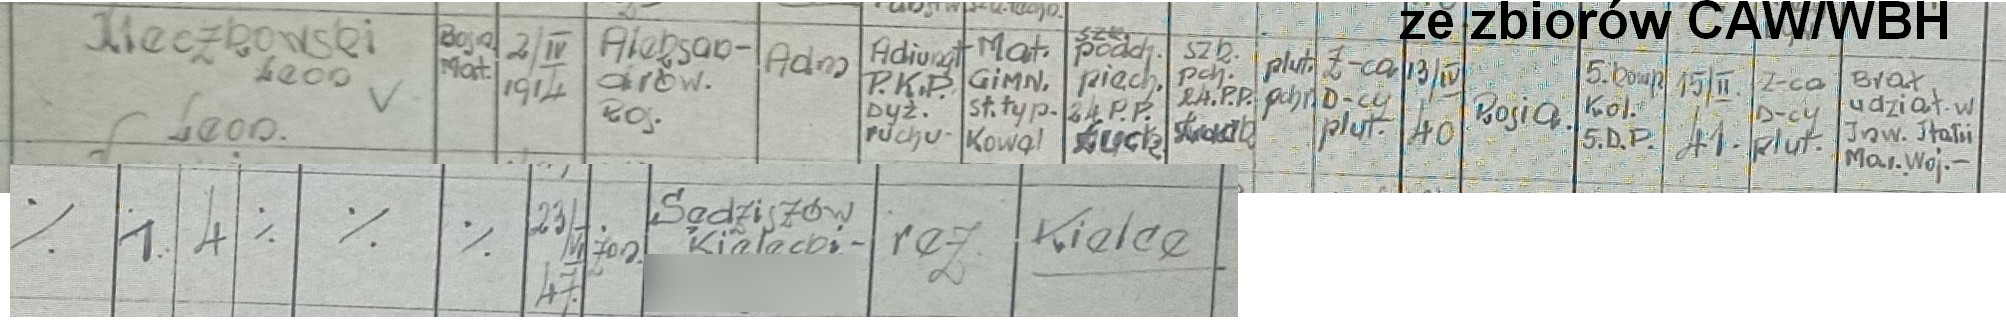 ze zbiorów CAW/WBH
Kieczkowski
Leon
Leon.
Rosja
Mat.
2/IV
1914
Aleksan-
drów.
Ros.
Adno
Adiunqt
P.K.P.
Dyż.
ruchu
Mat.
GiMN.
st.typ.
Kowal
szk.
podch.
piech.
24.P.P.
Łuck
szk.
pch.
24.P.P.
plut.
pchr
Z-ca
D-cy
plut.
13/IV
40
Rosja.
5.komp.
Kol.
5.D.P.
15/II.
41.
Z-ca
D-cy
plut.
Brak
udziat.w
Inw. Stalin
Mar.Woj.-
%
1.
4
%
%
%
23/
VI
47.
żon.
Sędziszów
Kielecki-
rez.
Kielce